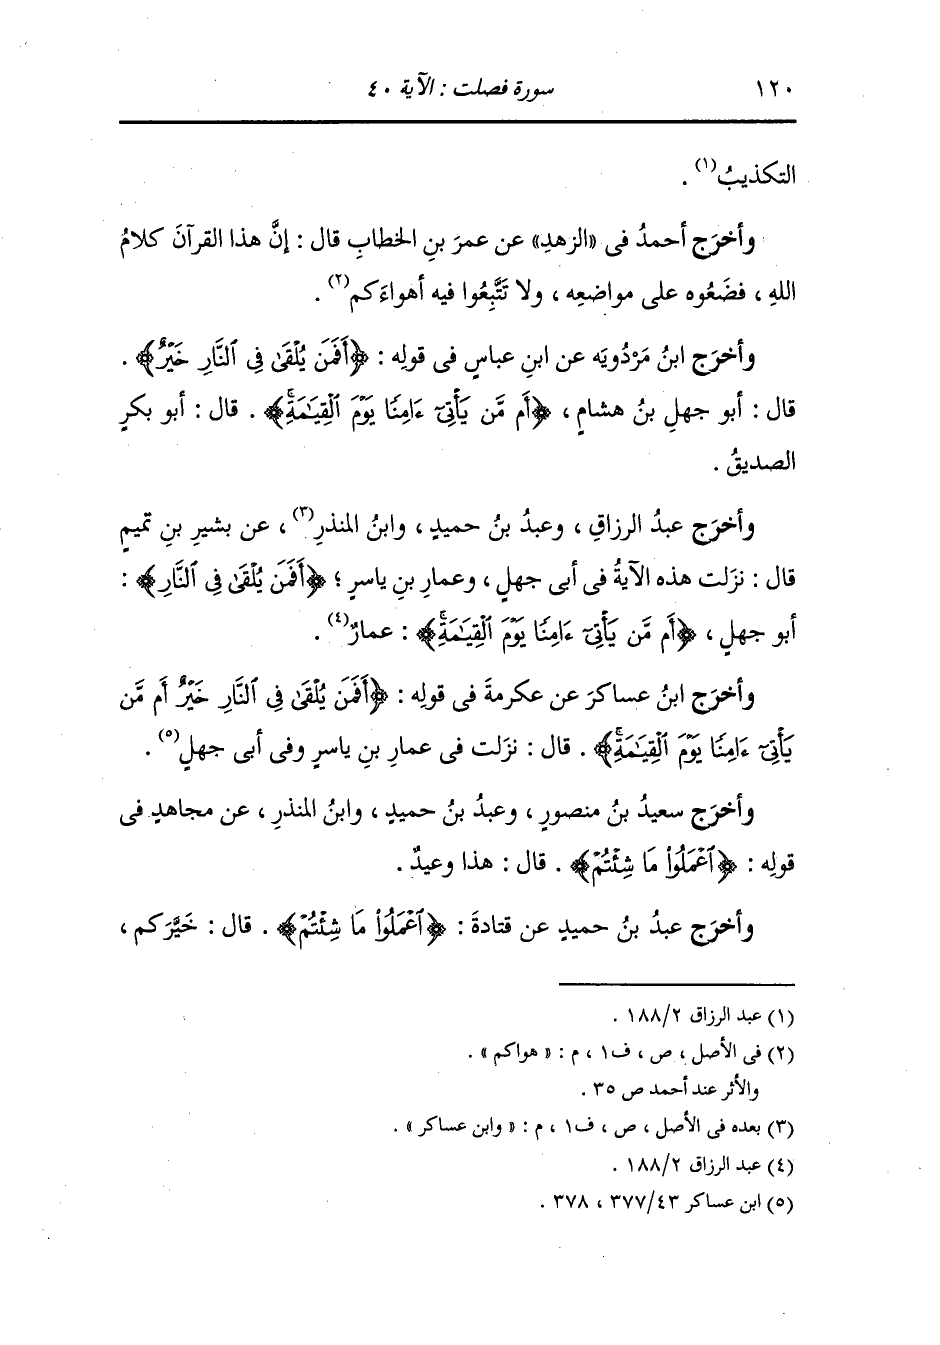 ١٢٠ سورة فصلت : الآية ٤٠
التكذيبُ(١) .
وأخرَج أحمدُ فى «الزهدِ» عن عمرَ بنِ الخطابِ قال : إنَّ هذا القرآنَ كلامُ
اللهِ ، فضَعُوه على مواضعِه ، ولا تَتَّبِعُوا فيه أهواءَكم(٢) .
وأخرَج ابنُ مَرْدُويَه عن ابنِ عباسٍ فى قولِه : ﴿أَفَمَن يُلْقَىٰ فِى ٱلنَّارِ خَيْرٌ﴾ .
قال : أبو جهلِ بنُ هشامٍ ، ﴿أَم مَّن يَأْتِىٓ ءَامِنًا يَوْمَ ٱلْقِيَـٰمَةِۚ﴾ . قال : أبو بكرٍ
الصديقُ .
وأخرَج عبدُ الرزاقِ ، وعبدُ بنُ حميدٍ ، وابنُ المنذرِ(٣) ، عن بشيرِ بنِ تميمٍ
قال : نزَلت هذه الآيةُ فى أبى جهلٍ ، وعمارِ بنِ ياسرٍ ؛ ﴿أَفَمَن يُلْقَىٰ فِى ٱلنَّارِ﴾ :
أبو جهلٍ ، ﴿أَم مَّن يَأْتِىٓ ءَامِنًا يَوْمَ ٱلْقِيَـٰمَةِۚ﴾ : عمارٌ(٤) .
وأخرَج ابنُ عساكرَ عن عكرمةَ فى قولِه : ﴿أَفَمَن يُلْقَىٰ فِى ٱلنَّارِ خَيْرٌ أَم مَّن
يَأْتِىٓ ءَامِنًا يَوْمَ ٱلْقِيَـٰمَةِۚ﴾ . قال : نزَلت فى عمارِ بنِ ياسرٍ وفى أبى جهلٍ(٥) .
وأخرَج سعيدُ بنُ منصورٍ ، وعبدُ بنُ حميدٍ ، وابنُ المنذرِ ، عن مجاهدٍ فى
قولِه : ﴿ٱعْمَلُوا۟ مَا شِئْتُمْ﴾ . قال : هذا وعيدٌ .
وأخرَج عبدُ بنُ حميدٍ عن قتادةَ : ﴿ٱعْمَلُوا۟ مَا شِئْتُمْ﴾ . قال : خَيَّرَكم ،
(١) عبد الرزاق ١٨٨/٢ .
(٢) فى الأصل ، ص ، ف١ ، م : « هواكم » .
والأثر عند أحمد ص ٣٥ .
(٣) بعده فى الأصل ، ص ، ف١ ، م : « وابن عساكر » .
(٤) عبد الرزاق ١٨٨/٢ .
(٥) ابن عساكر ٣٧٧/٤٣ ، ٣٧٨ .